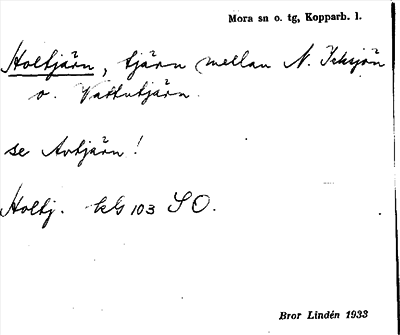 Mora sn o. tg, Kopparb. l.
Holtjärn, tjärn mellan N. Ycksjön
o. Vattutjärn.
se Avtjärn!
Holtj. kbl 103 SO.
Bror Lindén 1933